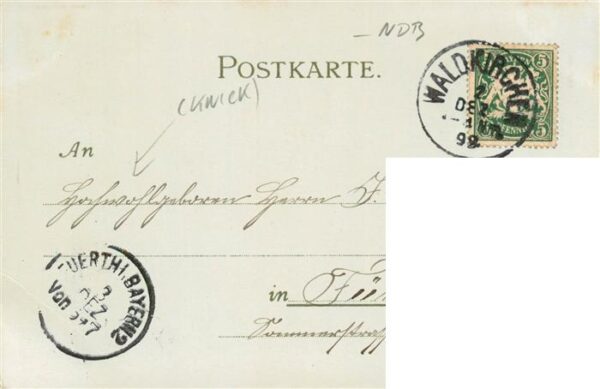 NDB
POSTKARTE.
(KNICK)
WALDKIRCHEN
2
DEZ
98
5 5
PFENNIG
An
Hochwohlgeboren Herrn J.
FUERTH I. BAYERN 2
3
DEZ
in Fü
Sommerstraß